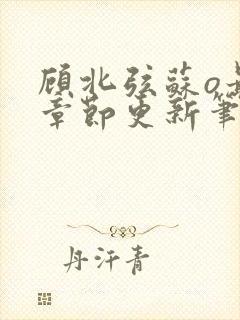 顾北弦蘇o
章節更新筆
丹汗青